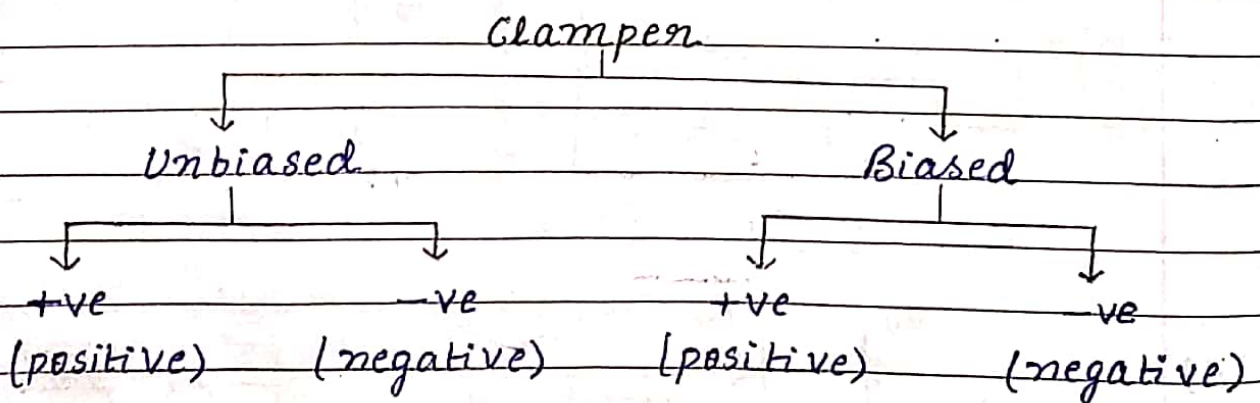 Clamper
Unbiased Biased
+ve -ve +ve -ve
(positive) (negative) (positive) (negative)